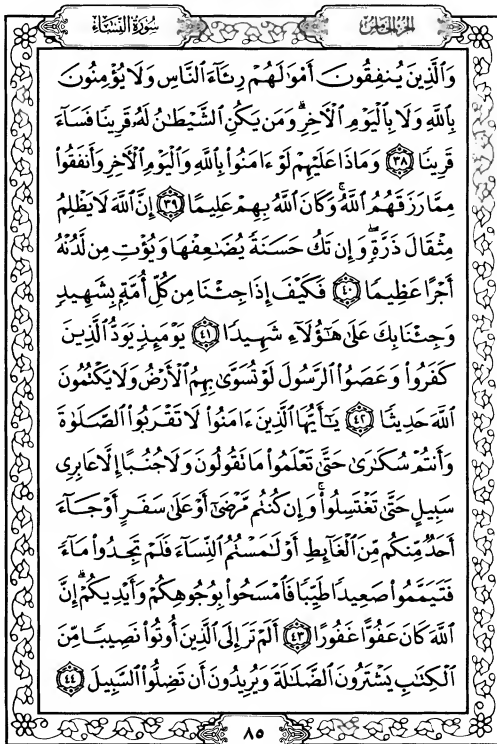 الجزء الخامس
سورة النساء
وَالَّذِينَ يُنفِقُونَ أَمْوَٰلَهُمْ رِئَآءَ ٱلنَّاسِ وَلَا يُؤْمِنُونَ
بِٱللَّهِ وَلَا بِٱلْيَوْمِ ٱلْآخِرِ ۗ وَمَن يَكُنِ ٱلشَّيْطَٰنُ لَهُۥ قَرِينًا فَسَآءَ
قَرِينًا ﴿٣٨﴾ وَمَاذَا عَلَيْهِمْ لَوْ ءَامَنُوا۟ بِٱللَّهِ وَٱلْيَوْمِ ٱلْآخِرِ وَأَنفَقُوا۟
مِمَّا رَزَقَهُمُ ٱللَّهُ ۚ وَكَانَ ٱللَّهُ بِهِمْ عَلِيمًا ﴿٣٩﴾ إِنَّ ٱللَّهَ لَا يَظْلِمُ
مِثْقَالَ ذَرَّةٍ ۖ وَإِن تَكُ حَسَنَةً يُضَٰعِفْهَا وَيُؤْتِ مِن لَّدُنْهُ
أَجْرًا عَظِيمًا ﴿٤٠﴾ فَكَيْفَ إِذَا جِئْنَا مِن كُلِّ أُمَّةٍۭ بِشَهِيدٍ
وَجِئْنَا بِكَ عَلَىٰ هَٰٓؤُلَآءِ شَهِيدًا ﴿٤١﴾ يَوْمَئِذٍ يَوَدُّ ٱلَّذِينَ
كَفَرُوا۟ وَعَصَوُا۟ ٱلرَّسُولَ لَوْ تُسَوَّىٰ بِهِمُ ٱلْأَرْضُ وَلَا يَكْتُمُونَ
ٱللَّهَ حَدِيثًا ﴿٤٢﴾ يَٰٓأَيُّهَا ٱلَّذِينَ ءَامَنُوا۟ لَا تَقْرَبُوا۟ ٱلصَّلَوٰةَ
وَأَنتُمْ سُكَٰرَىٰ حَتَّىٰ تَعْلَمُوا۟ مَا تَقُولُونَ وَلَا جُنُبًا إِلَّا عَابِرِى
سَبِيلٍ حَتَّىٰ تَغْتَسِلُوا۟ ۚ وَإِن كُنتُم مَّرْضَىٰٓ أَوْ عَلَىٰ سَفَرٍ أَوْ جَآءَ
أَحَدٌ مِّنكُم مِّنَ ٱلْغَآئِطِ أَوْ لَٰمَسْتُمُ ٱلنِّسَآءَ فَلَمْ تَجِدُوا۟ مَآءً
فَتَيَمَّمُوا۟ صَعِيدًا طَيِّبًا فَٱمْسَحُوا۟ بِوُجُوهِكُمْ وَأَيْدِيكُمْ ۗ إِنَّ
ٱللَّهَ كَانَ عَفُوًّا غَفُورًا ﴿٤٣﴾ أَلَمْ تَرَ إِلَى ٱلَّذِينَ أُوتُوا۟ نَصِيبًا مِّنَ
ٱلْكِتَٰبِ يَشْتَرُونَ ٱلضَّلَٰلَةَ وَيُرِيدُونَ أَن تَضِلُّوا۟ ٱلسَّبِيلَ ﴿٤٤﴾
٨٥